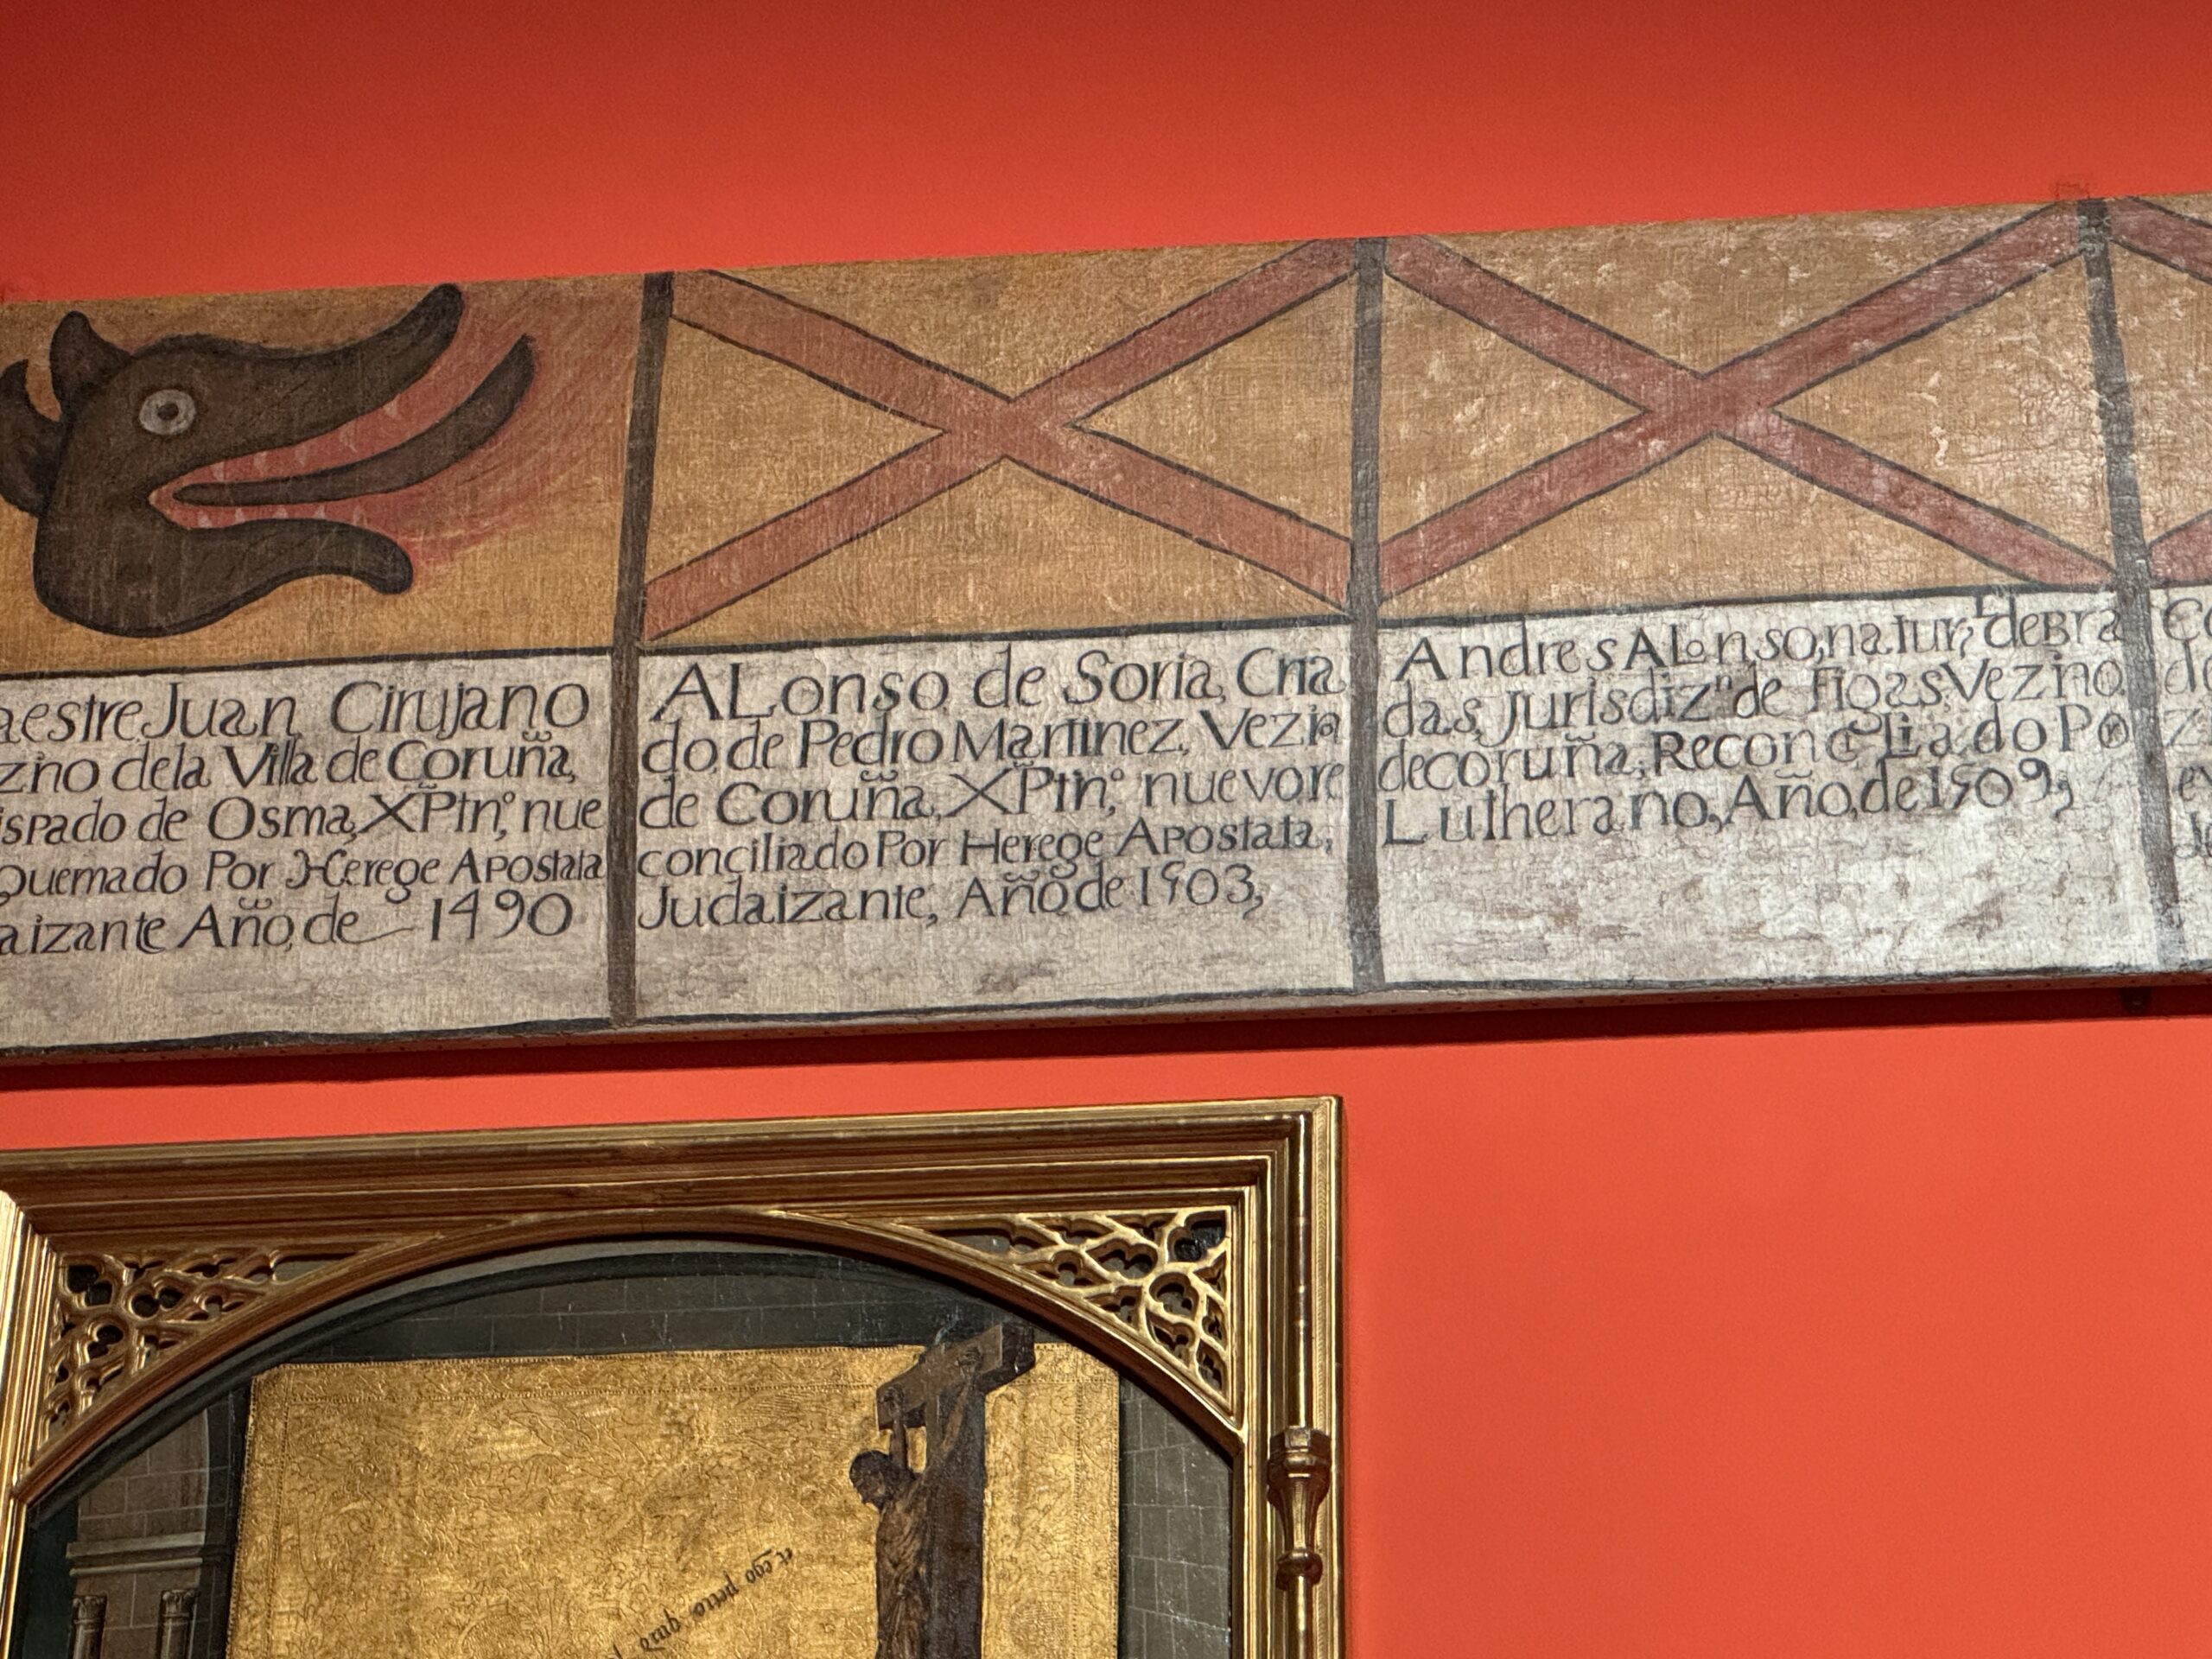 aestre Juan Cirujano
zno dela Villa de Coruña,
ispado de Osma, XPtnº, nue
Quemado Por Herege Apostata
aizante Año, de 1490
ALonso de Soria, Cria
do, de Pedro Martinez, Vezin
de Coruña, XPtnº, nuevo re
conçiliado Por Herege Apostata,
Judaizante, Año, de 1503,
Andres ALonso, natur, de Bra
das, Jurisdizn de Vezino
de coruña, Reconçiliado Po
Lutherano, Año, de 1509,
et ego petro